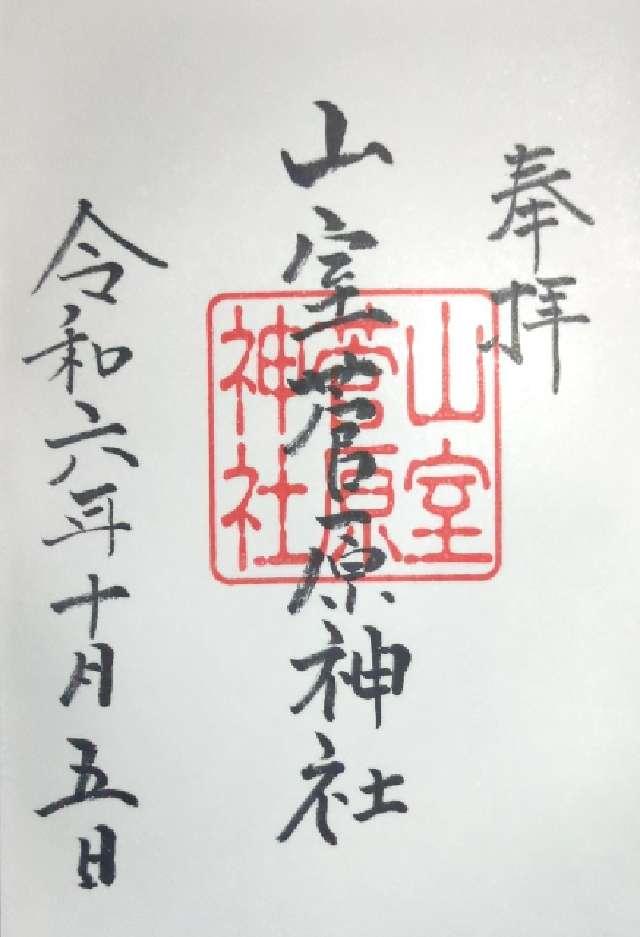 奉拝
山室菅原神社
山室
菅原
神社
令和六年十月五日